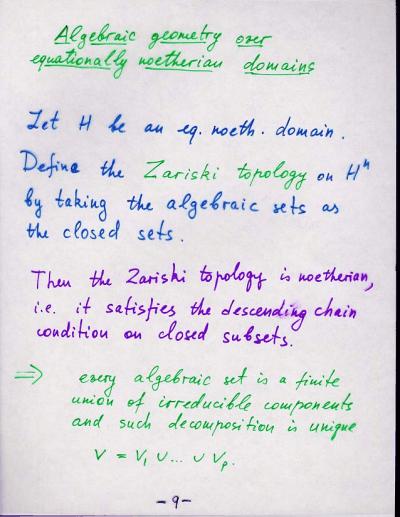 Algebraic geometry over
equationally noetherian domains
Let H be an eq. noeth. domain.
Define the Zariski topology on Hⁿ
by taking the algebraic sets as
the closed sets.
Then the Zariski topology is noetherian,
i.e. it satisfies the descending chain
condition on closed subsets.
⇒ every algebraic set is a finite
union of irreducible components
and such decomposition is unique
V = V₁ ∪ ... ∪ Vₚ.
- 9 -